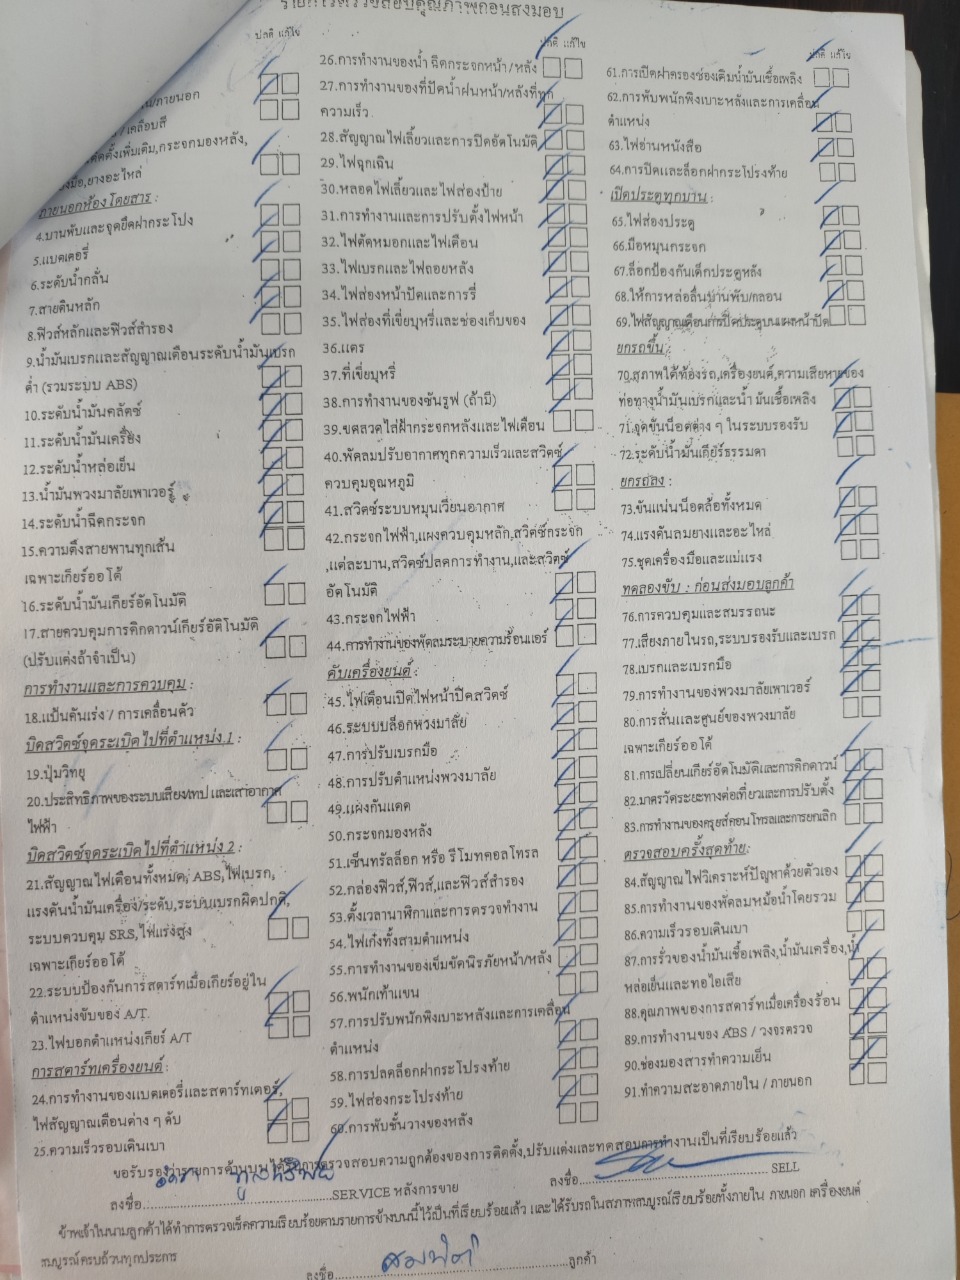 รายการตรวจสอบคุณภาพก่อนส่งมอบ
ปกติ แก้ไข
/ภายนอก
/ เคลือบสี
ติดตั้งเพิ่มเติม,กระจกมองหลัง,
ยางอะไหล่
ภายนอกห้องโดยสาร :
4.บานพับและจุดยึดฝากระโปง
5.แบตเตอรี่
6.ระดับน้ำกลั่น
7.สายดินหลัก
8.ฟิวส์หลักและฟิวส์สำรอง
9.น้ำมันเบรกและสัญญาณเตือนระดับน้ำมันเบรก
ต่ำ (รวมระบบ ABS)
10.ระดับน้ำมันคลัตช์
11.ระดับน้ำมันเครื่อง
12.ระดับน้ำหล่อเย็น
13.น้ำมันพวงมาลัยเพาเวอร์
14.ระดับน้ำฉีดกระจก
15.ความตึงสายพานทุกเส้น
เฉพาะเกียร์ออโต้
16.ระดับน้ำมันเกียร์อัตโนมัติ
17.สายควบคุมการคิกดาวน์เกียร์อัติโนมัติ
(ปรับแต่งถ้าจำเป็น)
การทำงานและการควบคุม :
18.แป้นคันเร่ง / การเคลื่อนตัว
บิดสวิตซ์จุดระเบิดไปที่ตำแหน่ง 1 :
19.ปุ่มวิทยุ
20.ประสิทธิภาพของระบบเสียง/เทป และเสาอากาศ
ไฟฟ้า
บิดสวิตซ์จุดระเบิดไปที่ตำแหน่ง 2 :
21.สัญญาณไฟเตือนทั้งหมด, ABS,ไฟเบรก,
แรงดันน้ำมันเครื่อง/ระดับ,ระบบเบรกผิดปกติ,
ระบบควบคุม SRS,ไฟแรงสูง
เฉพาะเกียร์ออโต้
22.ระบบป้องกันการสตาร์ทเมื่อเกียร์อยู่ใน
ตำแหน่งขับของ A/T.
23.ไฟบอกตำแหน่งเกียร์ A/T
การสตาร์ทเครื่องยนต์ :
24.การทำงานของแบตเตอรี่และสตาร์ทเตอร์,
ไฟสัญญาณเตือนต่าง ๆ ดับ
25.ความเร็วรอบเดินเบา
ปกติ แก้ไข
26.การทำงานของน้ำ ฉีดกระจกหน้า/หลัง
27.การทำงานของที่ปัดน้ำฝนหน้า/หลังที่ทุก
ความเร็ว
28.สัญญาณไฟเลี้ยวและการปิดอัตโนมัติ
29.ไฟฉุกเฉิน
30.หลอดไฟเลี้ยวและไฟส่องป้าย
31.การทำงานและการปรับตั้งไฟหน้า
32.ไฟตัดหมอกและไฟเตือน
33.ไฟเบรกและไฟถอยหลัง
34.ไฟส่องหน้าปัดและการรี่
35.ไฟส่องที่เขี่ยบุหรี่และช่องเก็บของ
36.แตร
37.ที่เขี่ยบุหรี่
38.การทำงานของซันรูฟ (ถ้ามี)
39.ขดลวดไล่ฝ้ากระจกหลังและไฟเตือน
40.พัดลมปรับอากาศทุกความเร็วและสวิตซ์
ควบคุมอุณหภูมิ
41.สวิตซ์ระบบหมุนเวียนอากาศ
42.กระจกไฟฟ้า,แผงควบคุมหลัก,สวิตซ์กระจก
,แต่ละบาน,สวิตซ์ปลดการทำงาน,และสวิตซ์
อัตโนมัติ
43.กระจกไฟฟ้า
44.การทำงานของพัดลมระบายความร้อนแอร์
ดับเครื่องยนต์ :
45.ไฟเตือนเปิดไฟหน้าปิดสวิตซ์
46.ระบบบล็อกพวงมาลัย
47.การปรับเบรกมือ
48.การปรับตำแหน่งพวงมาลัย
49.แผ่งกันแดด
50.กระจกมองหลัง
51.เซ็นทรัลล็อก หรือ รีโมทคอลโทรล
52.กล่องฟิวส์,ฟิวส์,และฟิวส์สำรอง
53.ตั้งเวลานาฬิกาและการตรวจทำงาน
54.ไฟเก๋งทั้งสามตำแหน่ง
55.การทำงานของเข็มขัดนิรภัยหน้า/หลัง
56.พนักเท้าแขน
57.การปรับพนักพิงเบาะหลังและการเคลื่อน
ตำแหน่ง
58.การปลดล็อกฝากระโปรงท้าย
59.ไฟส่องกระโปรงท้าย
60.การพับชั้นวางของหลัง
ปกติ แก้ไข
61.การเปิดฝาครองช่องเติมน้ำมันเชื้อเพลิง
62.การพับพนักพิงเบาะหลังและการเคลื่อน
ตำแหน่ง
63.ไฟอ่านหนังสือ
64.การปิดและล็อกฝากระโปรงท้าย
เปิดประตูทุกบาน :
65.ไฟส่องประตู
66.มือหมุนกระจก
67.ล็อกป้องกันเด็กประตูหลัง
68.ให้การหล่อลื่นบานพับ/กลอน
69.ไฟสัญญาณเตือนการปิดประตูบนแผงหน้าปัด
ยกรถขึ้น :
70.สภาพใต้ท้องรถ,เครื่องยนต์,ความเสียหายของ
ท่อทางน้ำมันเบรกและน้ำ มันเชื้อเพลิง
71.จุดขันน็อตต่าง ๆ ในระบบรองรับ
72.ระดับน้ำมันเกียร์ธรรมดา
ยกรถลง :
73.ขันแน่นน็อตล้อทั้งหมด
74.แรงดันลมยางและอะไหล่
75.ชุดเครื่องมือและแม่แรง
ทดลองขับ : ก่อนส่งมอบลูกค้า
76.การควบคุมและสมรรถนะ
77.เสียงภายในรถ,ระบบรองรับและเบรก
78.เบรกและเบรกมือ
79.การทำงานของพวงมาลัยเพาเวอร์
80.การสั่นและศูนย์ของพวงมาลัย
เฉพาะเกียร์ออโต้
81.การเปลี่ยนเกียร์อัตโนมัติและการคิกดาวน์
82.มาตรวัดระยะทางต่อเที่ยวและการปรับตั้ง
83.การทำงานของครุยส์คอนโทรลและการยกเลิก
ตรวจสอบครั้งสุดท้าย:
84.สัญญาณไฟวิเคราะห์ปัญหาด้วยตัวเอง
85.การทำงานของพัดลมหม้อน้ำโดยรวม
86.ความเร็วรอบเดินเบา
87.การรั่วของน้ำมันเชื้อเพลิง,น้ำมันเครื่อง,น้ำ
หล่อเย็นและทอไอเสีย
88.คุณภาพของการสตาร์ทเมื่อเครื่องร้อน
89.การทำงานของ ABS / วงจรตรวจ
90.ช่องมองสารทำความเย็น
91.ทำความสะอาดภายใน / ภายนอก
ขอรับรองว่ารายการด้านบนได้รับการตรวจสอบความถูกต้องของการติดตั้ง,ปรับแต่งและทดสอบการทำงานเป็นที่เรียบร้อยแล้ว
ลงชื่อ SERVICE หลังการขาย ลงชื่อ SELL
ข้าพเจ้าในนามลูกค้าได้ทำการตรวจเช็คความเรียบร้อยตามรายการข้างบนนี้ไว้เป็นที่เรียบร้อยแล้ว และได้รับรถในสภาพสมบูรณ์เรียบร้อยทั้งภายใน ภายนอก เครื่องยนต์
สมบูรณ์ครบถ้วนทุกประการ
ลงชื่อ ลูกค้า